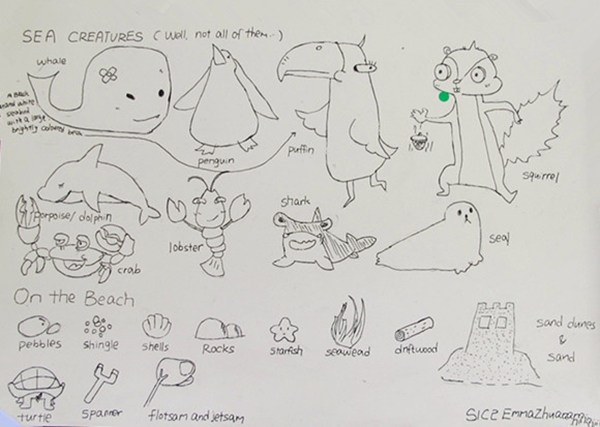 SEA CREATURES (Well, not all of them...)
whale
A Black
and white
seabird
with a large
brightly coloured beak
penguin
puffin
squirrel
porpoise/dolphin
crab
lobster
shark
seal
On the Beach
pebbles
shingle
shells
Rocks
starfish
seawead
driftwood
sand dunes
&
sand
turtle
spanner
flotsam and jetsam
S1C2 Emma